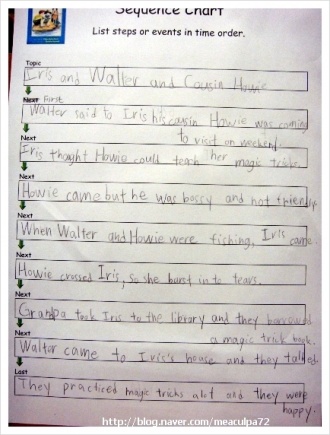 Sequence Chart
List steps or events in time order.
Topic
Iris and Walter and Cousin Howie
Next First
Walter said to Iris his cousin Howie was coming
to visit on weekend.
Next
Iris thought Howie could teach her magic tricks.
Next
Howie came but he was bossy and not friendly.
Next
When Walter and Howie were fishing, Iris came.
Next
Howie crossed Iris, so she burst in to tears.
Next
Grandpa took Iris to the library and they borrowed
a magic trick book.
Next
Walter came to Iris's house and they talked.
Last
They practiced magic tricks alot and they were
happy.
http://blog.naver.com/meaculpa72